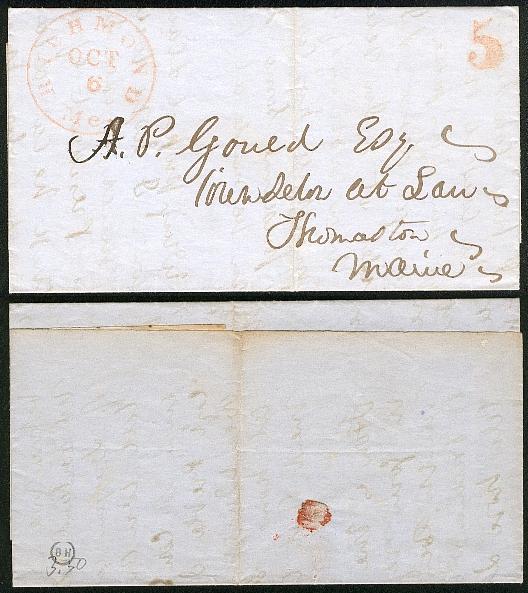 RICHMOND Me.
OCT
6
5
A. P. Gould Esq.
Counselor at Law
Thomaston
Maine
BH
3.50